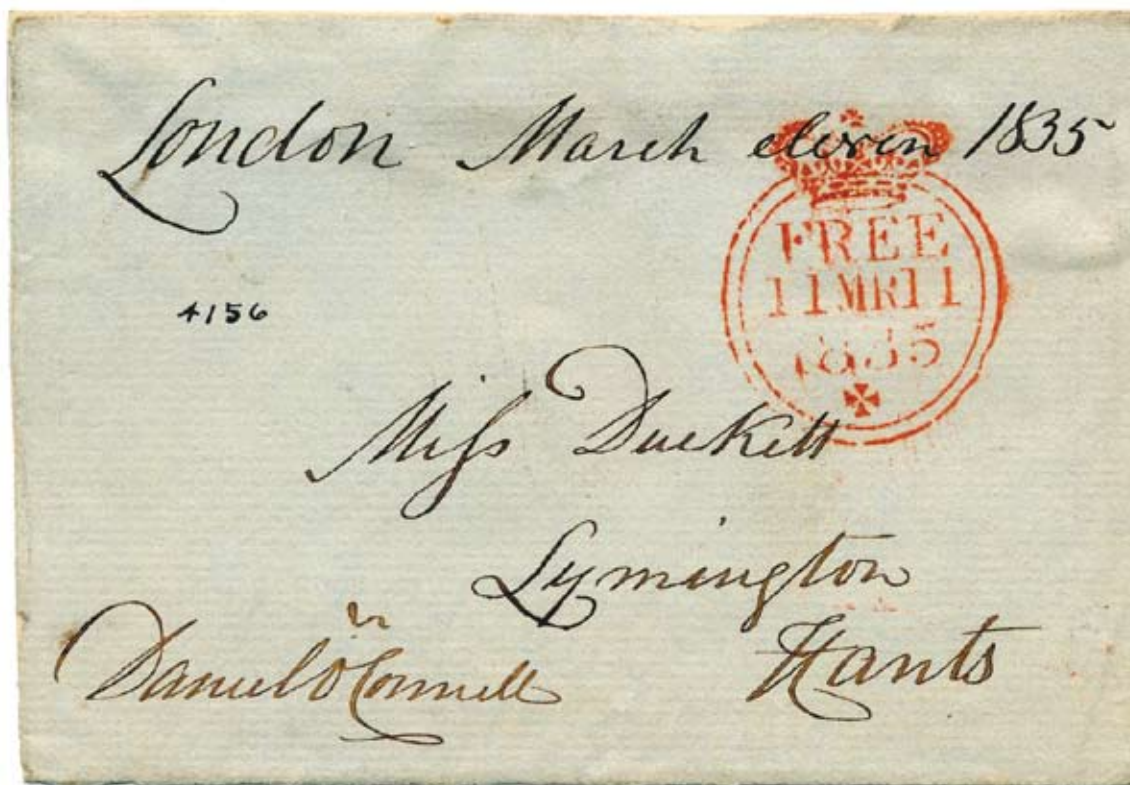 London March eleven 1835
FREE
11MR11
1835
4156
Miss Duckett
Lymington
Hants
Daniel O'Connell